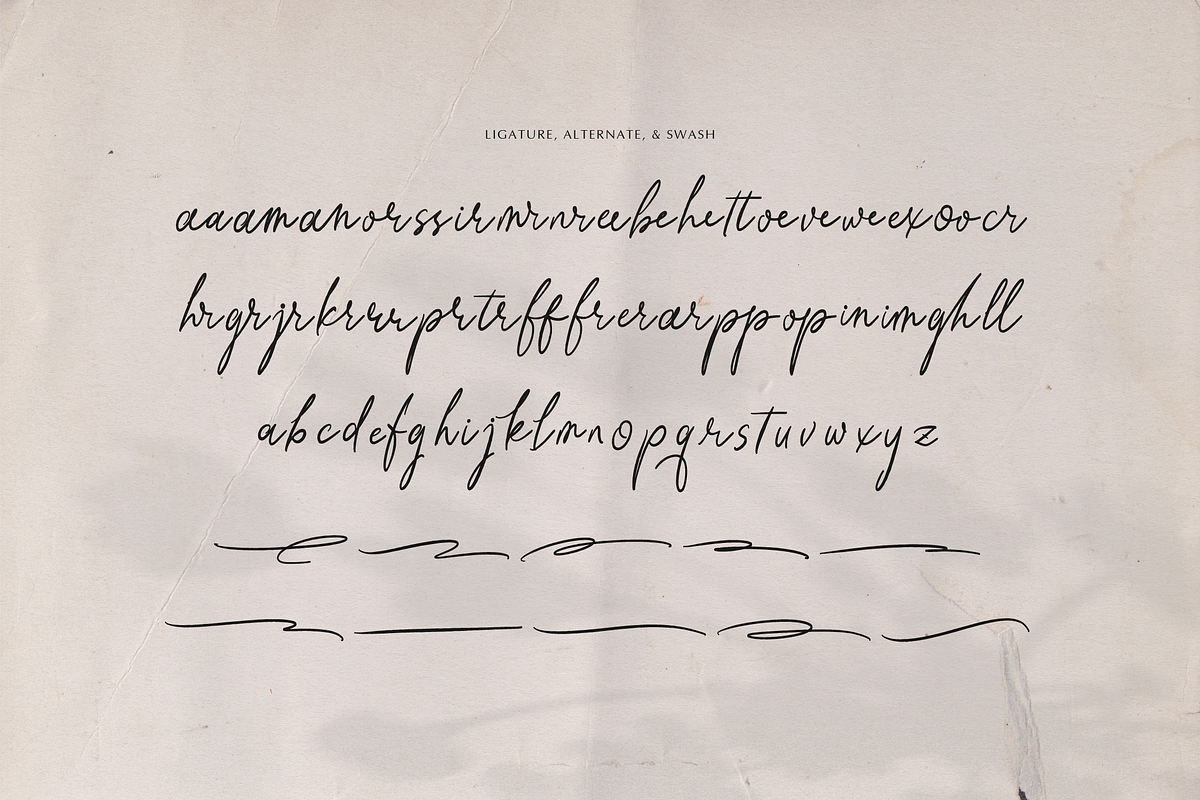 LIGATURE, ALTERNATE, & SWASH
aaamanorssirmrnreebehettoeveweexoocr
hrgrjrkrrrrprtrffffrerarppopinimghll
abcdefghijklmnopqrstuvwxyz